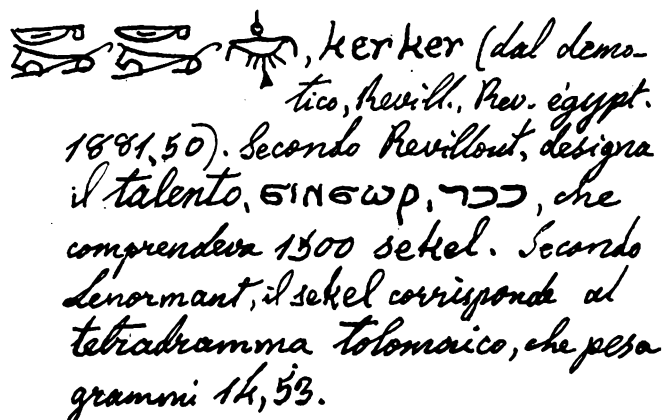 , kerker (dal demo-
tico, Revill., Rev. égypt.
1881, 50). Secondo Revillout, designa
il talento, ϭⲓⲛϭⲱⲣ, ככר, che
comprendeva 1500 sekel. Secondo
Lenormant, il sekel corrisponde al
tetradramma tolomaico, che pesa
grammi 14,53.